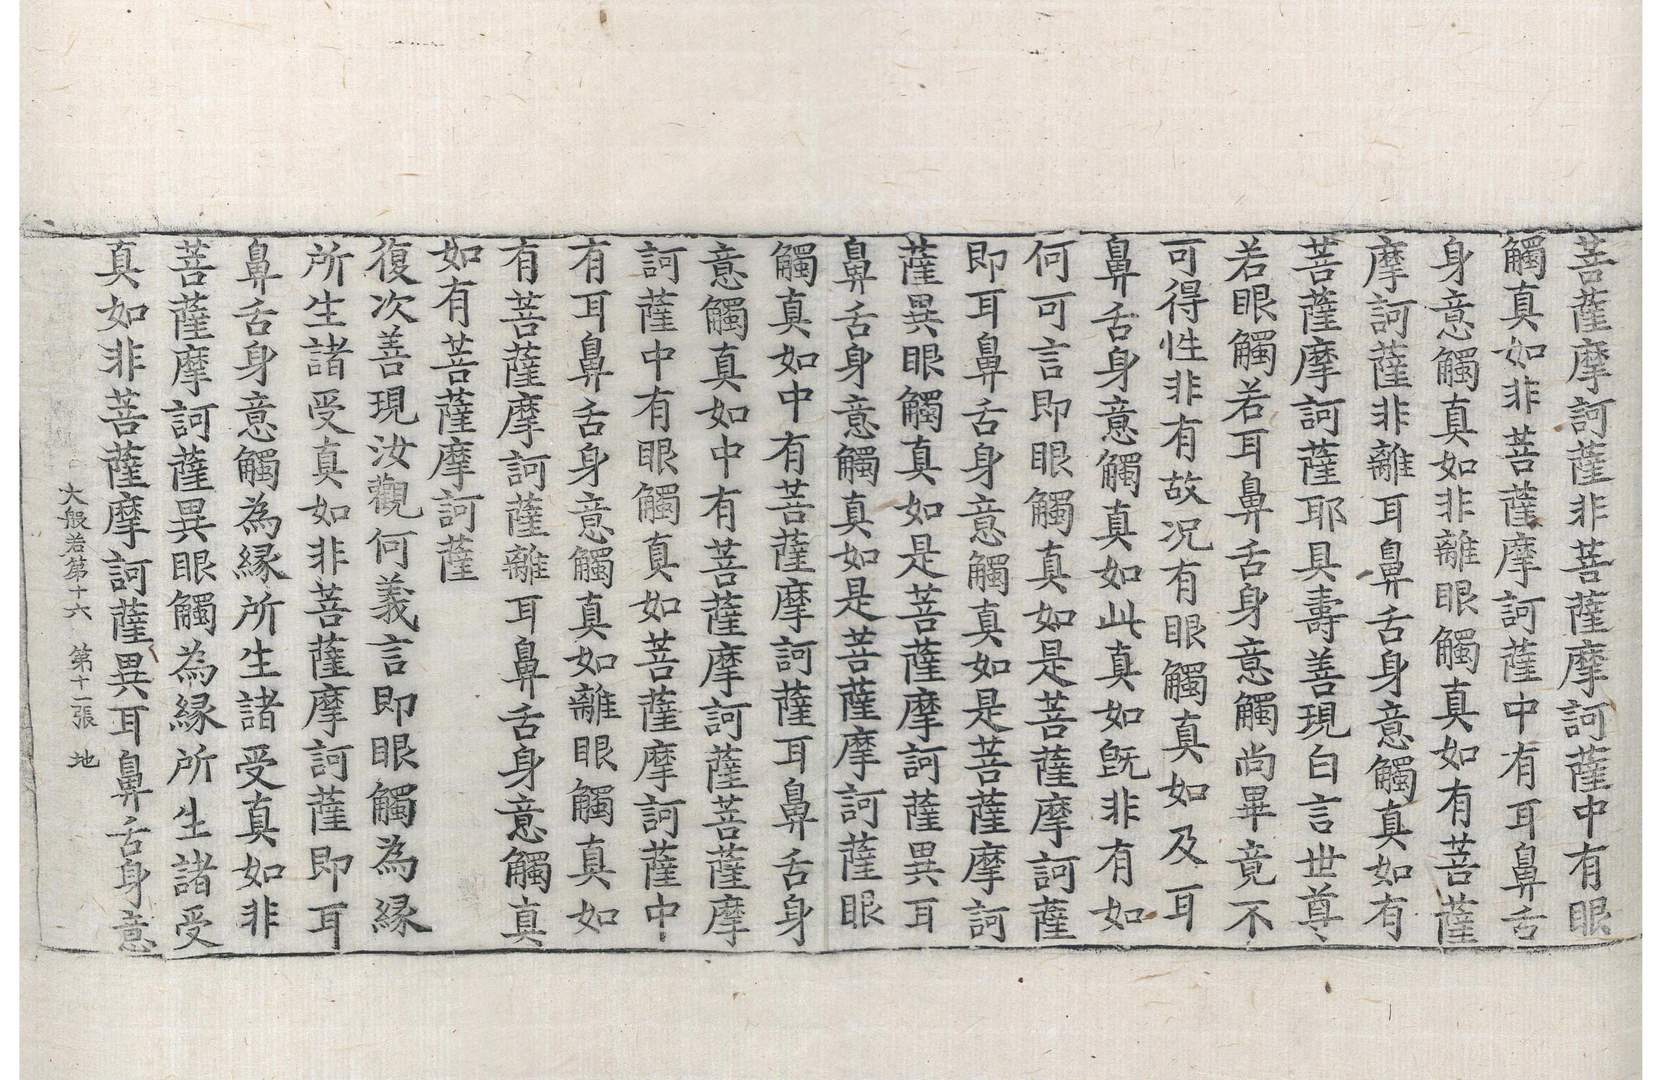 菩薩摩訶薩非菩薩摩訶薩中有眼
觸真如非菩薩摩訶薩中有耳鼻舌
身意觸真如非離眼觸真如有菩薩
摩訶薩非離耳鼻舌身意觸真如有
菩薩摩訶薩耶具壽善現白言世尊
若眼觸若耳鼻舌身意觸尚畢竟不
可得性非有故况有眼觸真如及耳
鼻舌身意觸真如此真如旣非有如
何可言即眼觸真如是菩薩摩訶薩
即耳鼻舌身意觸真如是菩薩摩訶
薩異眼觸真如是菩薩摩訶薩異耳
鼻舌身意觸真如是菩薩摩訶薩眼
觸真如中有菩薩摩訶薩耳鼻舌身
意觸真如中有菩薩摩訶薩菩薩摩
訶薩中有眼觸真如菩薩摩訶薩中
有耳鼻舌身意觸真如離眼觸真如
有菩薩摩訶薩離耳鼻舌身意觸真
如有菩薩摩訶薩
復次善現汝觀何義言即眼觸為緣
所生諸受真如非菩薩摩訶薩即耳
鼻舌身意觸為緣所生諸受真如非
菩薩摩訶薩異眼觸為緣所生諸受
真如非菩薩摩訶薩異耳鼻舌身意
大般若第十六 第十一張 地